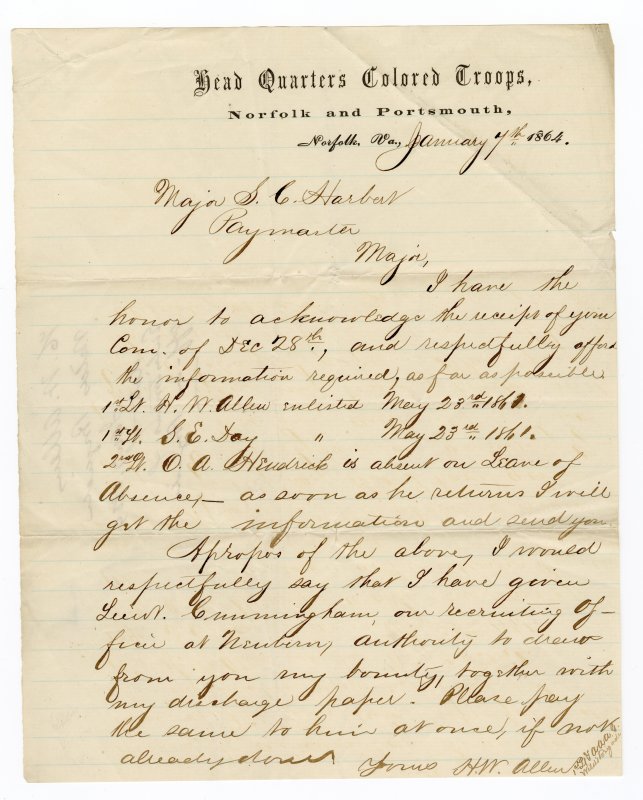 Head Quarters Colored Troops,
Norfolk and Portsmouth,
Norfolk, Va., January 7th 1864.
Major S. C. Harbert
Paymaster
Major,
I have the
honor to acknowledge the receipt of your
Com. of Dec 28th, and respectfully afford
the information required, as far as possible
1st Lt. H. W. Allen enlisted May 23rd 1861.
1st Lt. S. E. Day " May 23rd 1861.
2nd Lt. O. A. Hendrick is absent on Leave of
Absence,— as soon as he returns I will
get the information and send you
Apropos of the above, I would
respectfully say that I have given
Lieut. Cunningham, our recruiting Of-
ficer at Newbern, authority to draw
from you my bounty, together with
my discharge paper. Please pay
the same to him at once, if not
already done
Yours H. W. Allen